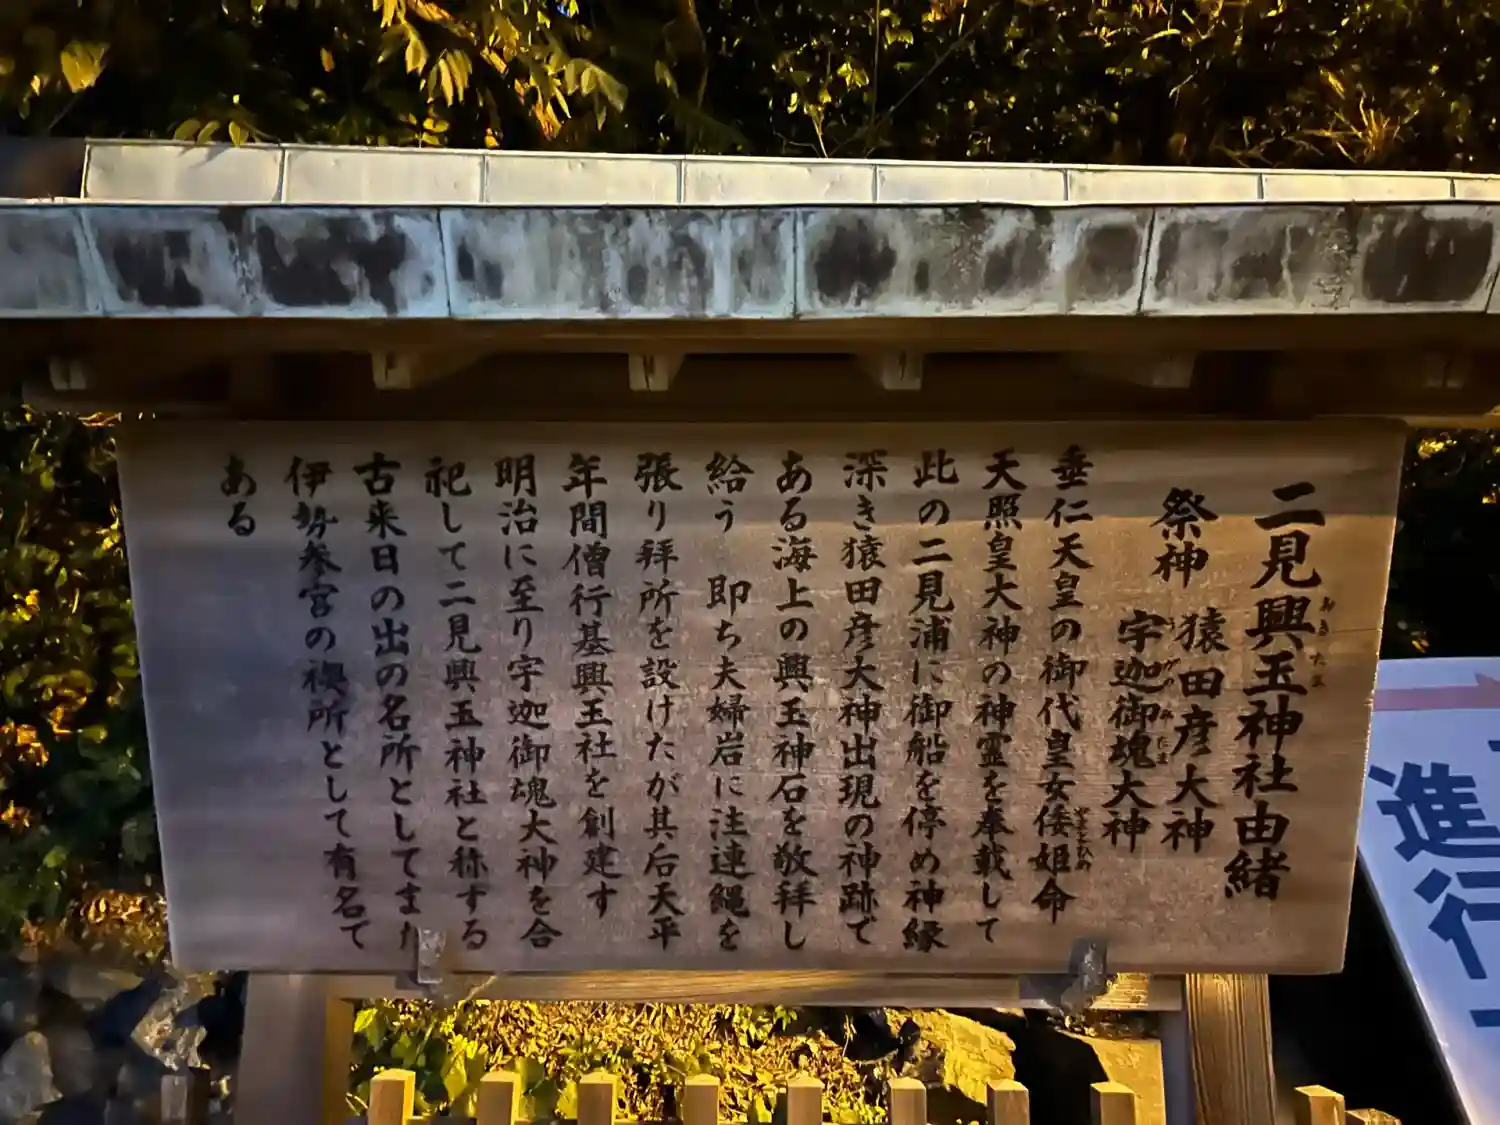 二見興玉神社由緒
おきたま
祭神 猿田彦大神
宇迦御魂大神
うがのみたま
垂仁天皇の御代皇女倭姫命
やまとひめ
天照皇大神の神霊を奉載して
此の二見浦に御船を停め神縁
深き猿田彦大神出現の神跡で
ある海上の興玉神石を敬拝し
給う 即ち夫婦岩に注連縄を
張り拝所を設けたが其后天平
年間僧行基興玉社を創建す
明治に至り宇迦御魂大神を合
祀して二見興玉神社と称する
古来日の出の名所としてまた
伊勢参宮の禊所として有名で
ある
進行